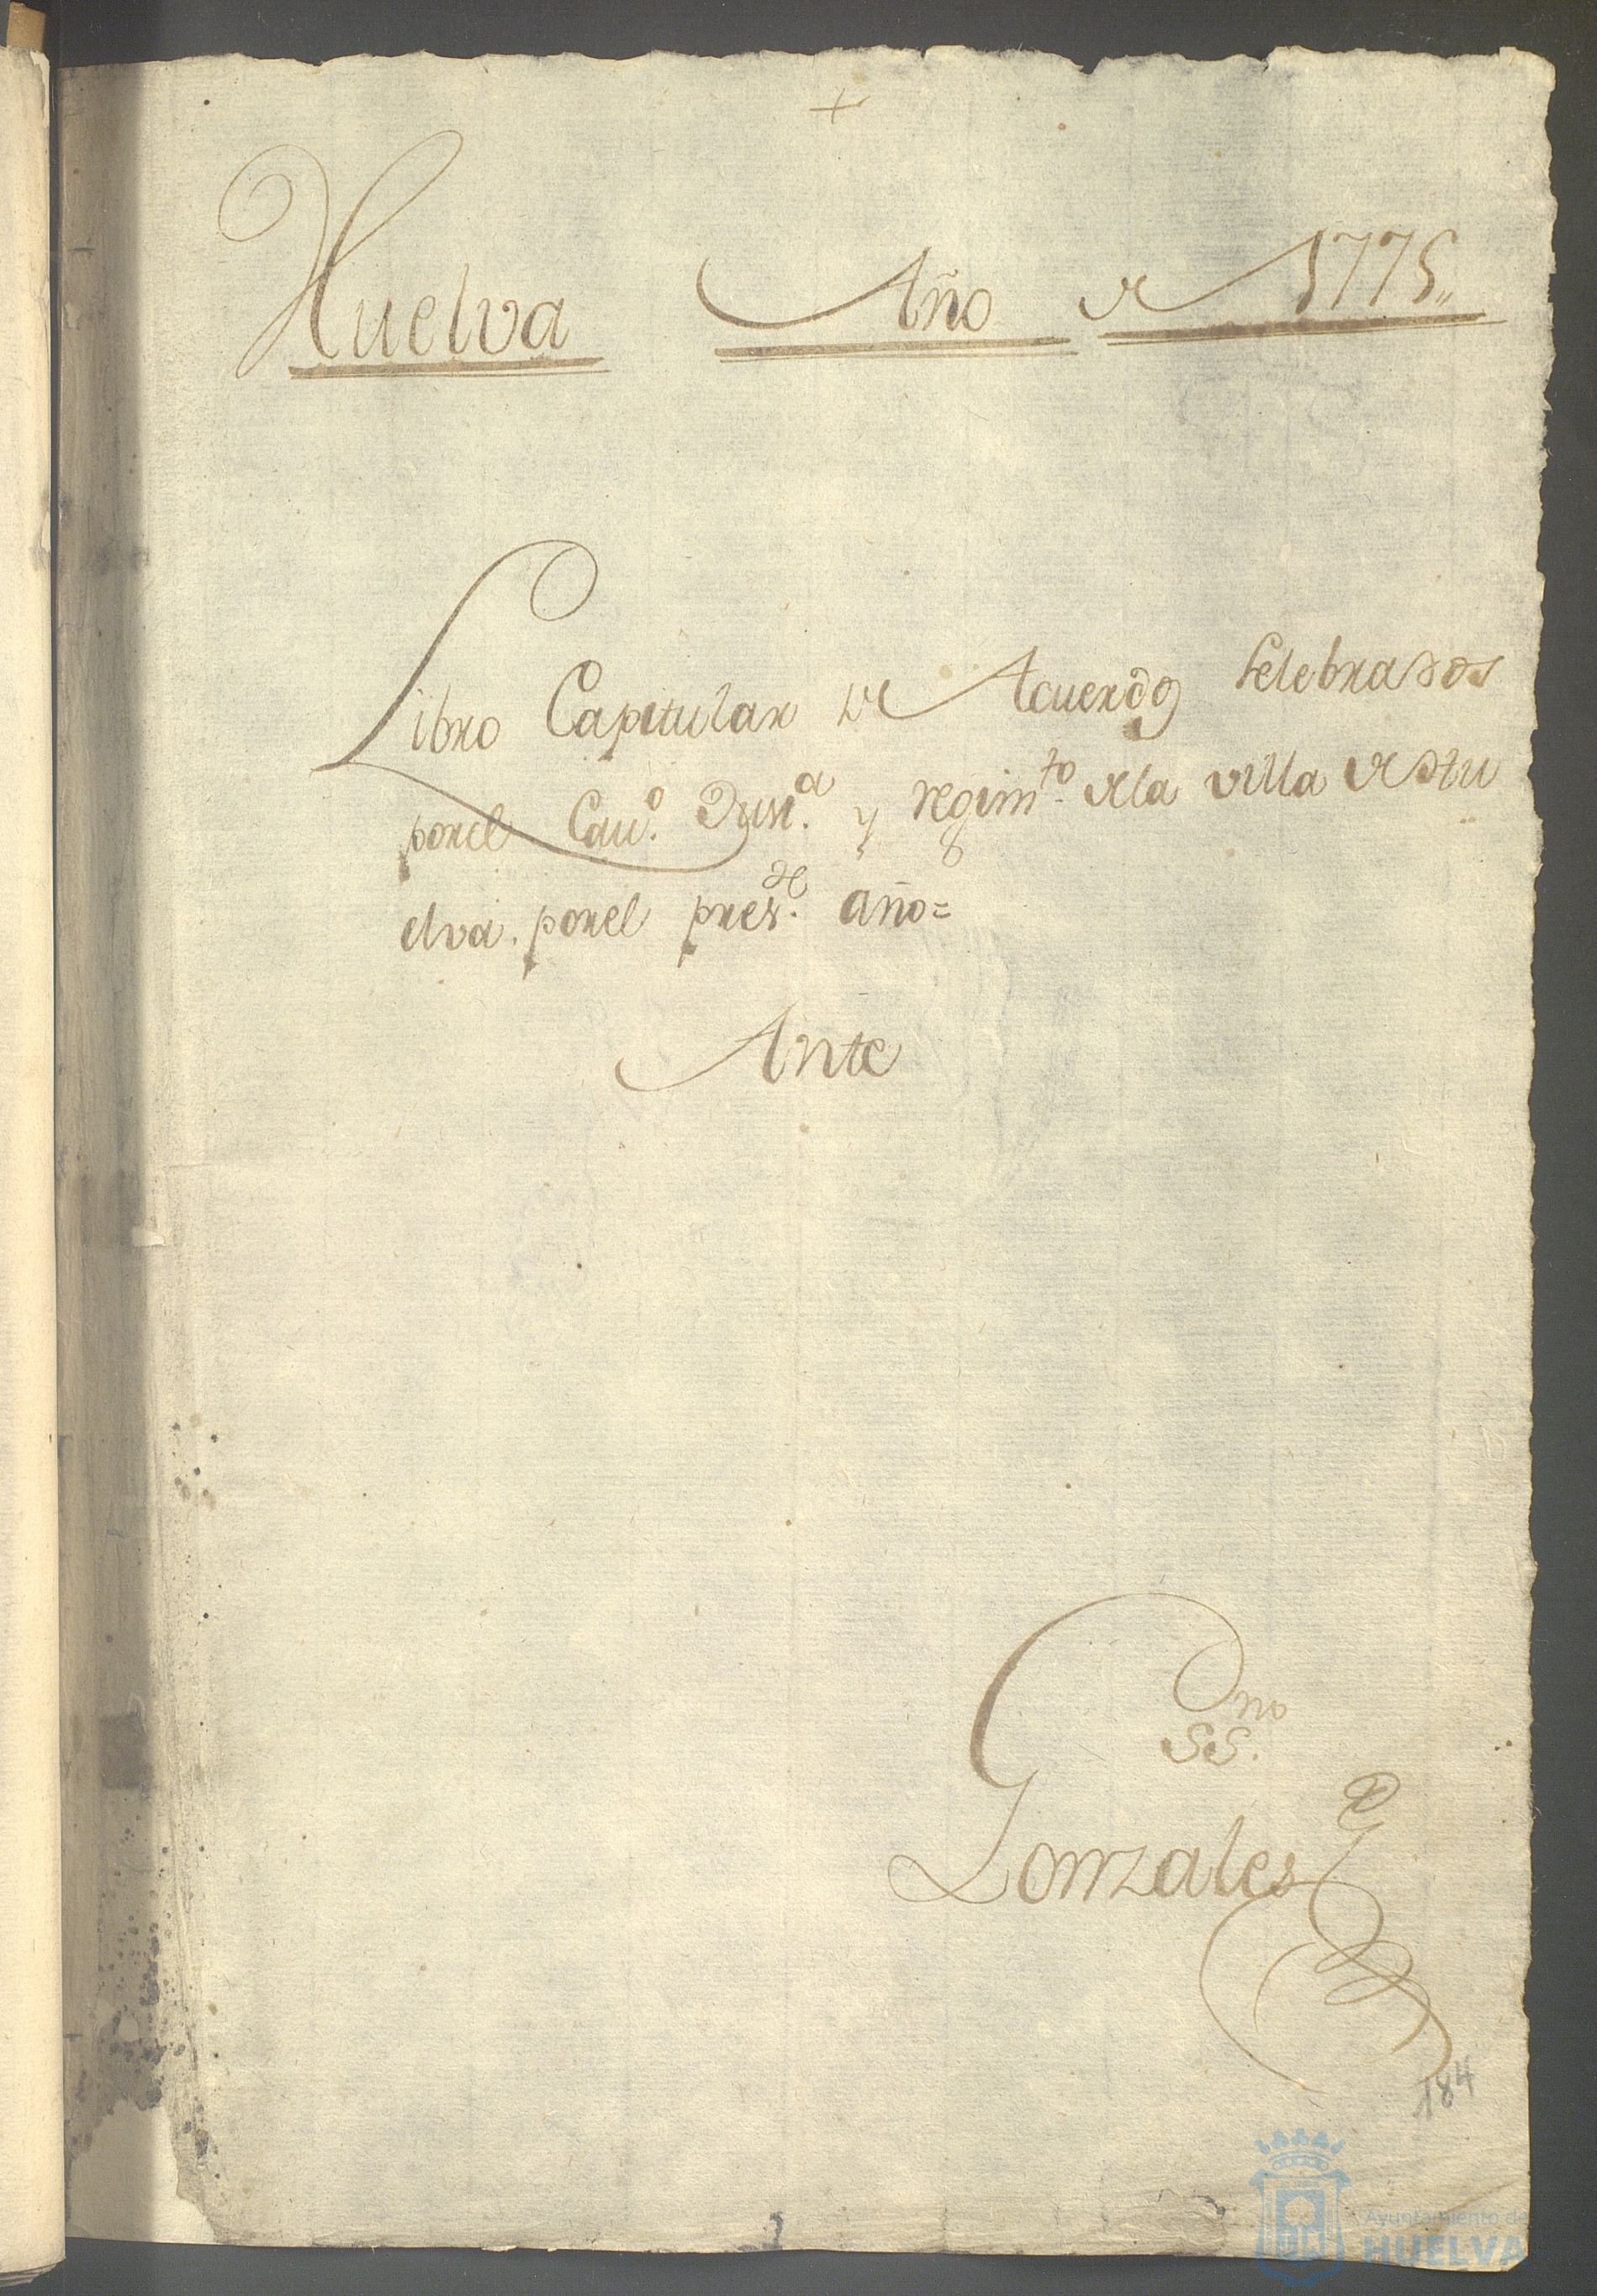 +
Huelva Año de 1775
Libro Capitular de Acuerdos Celebrados
por el Cav.º Just.ª y regim.to de la villa de Hu
elva. por el pres.te año=
Ante
SS.no
Gonzales
184
Ayuntamiento de
HUELVA